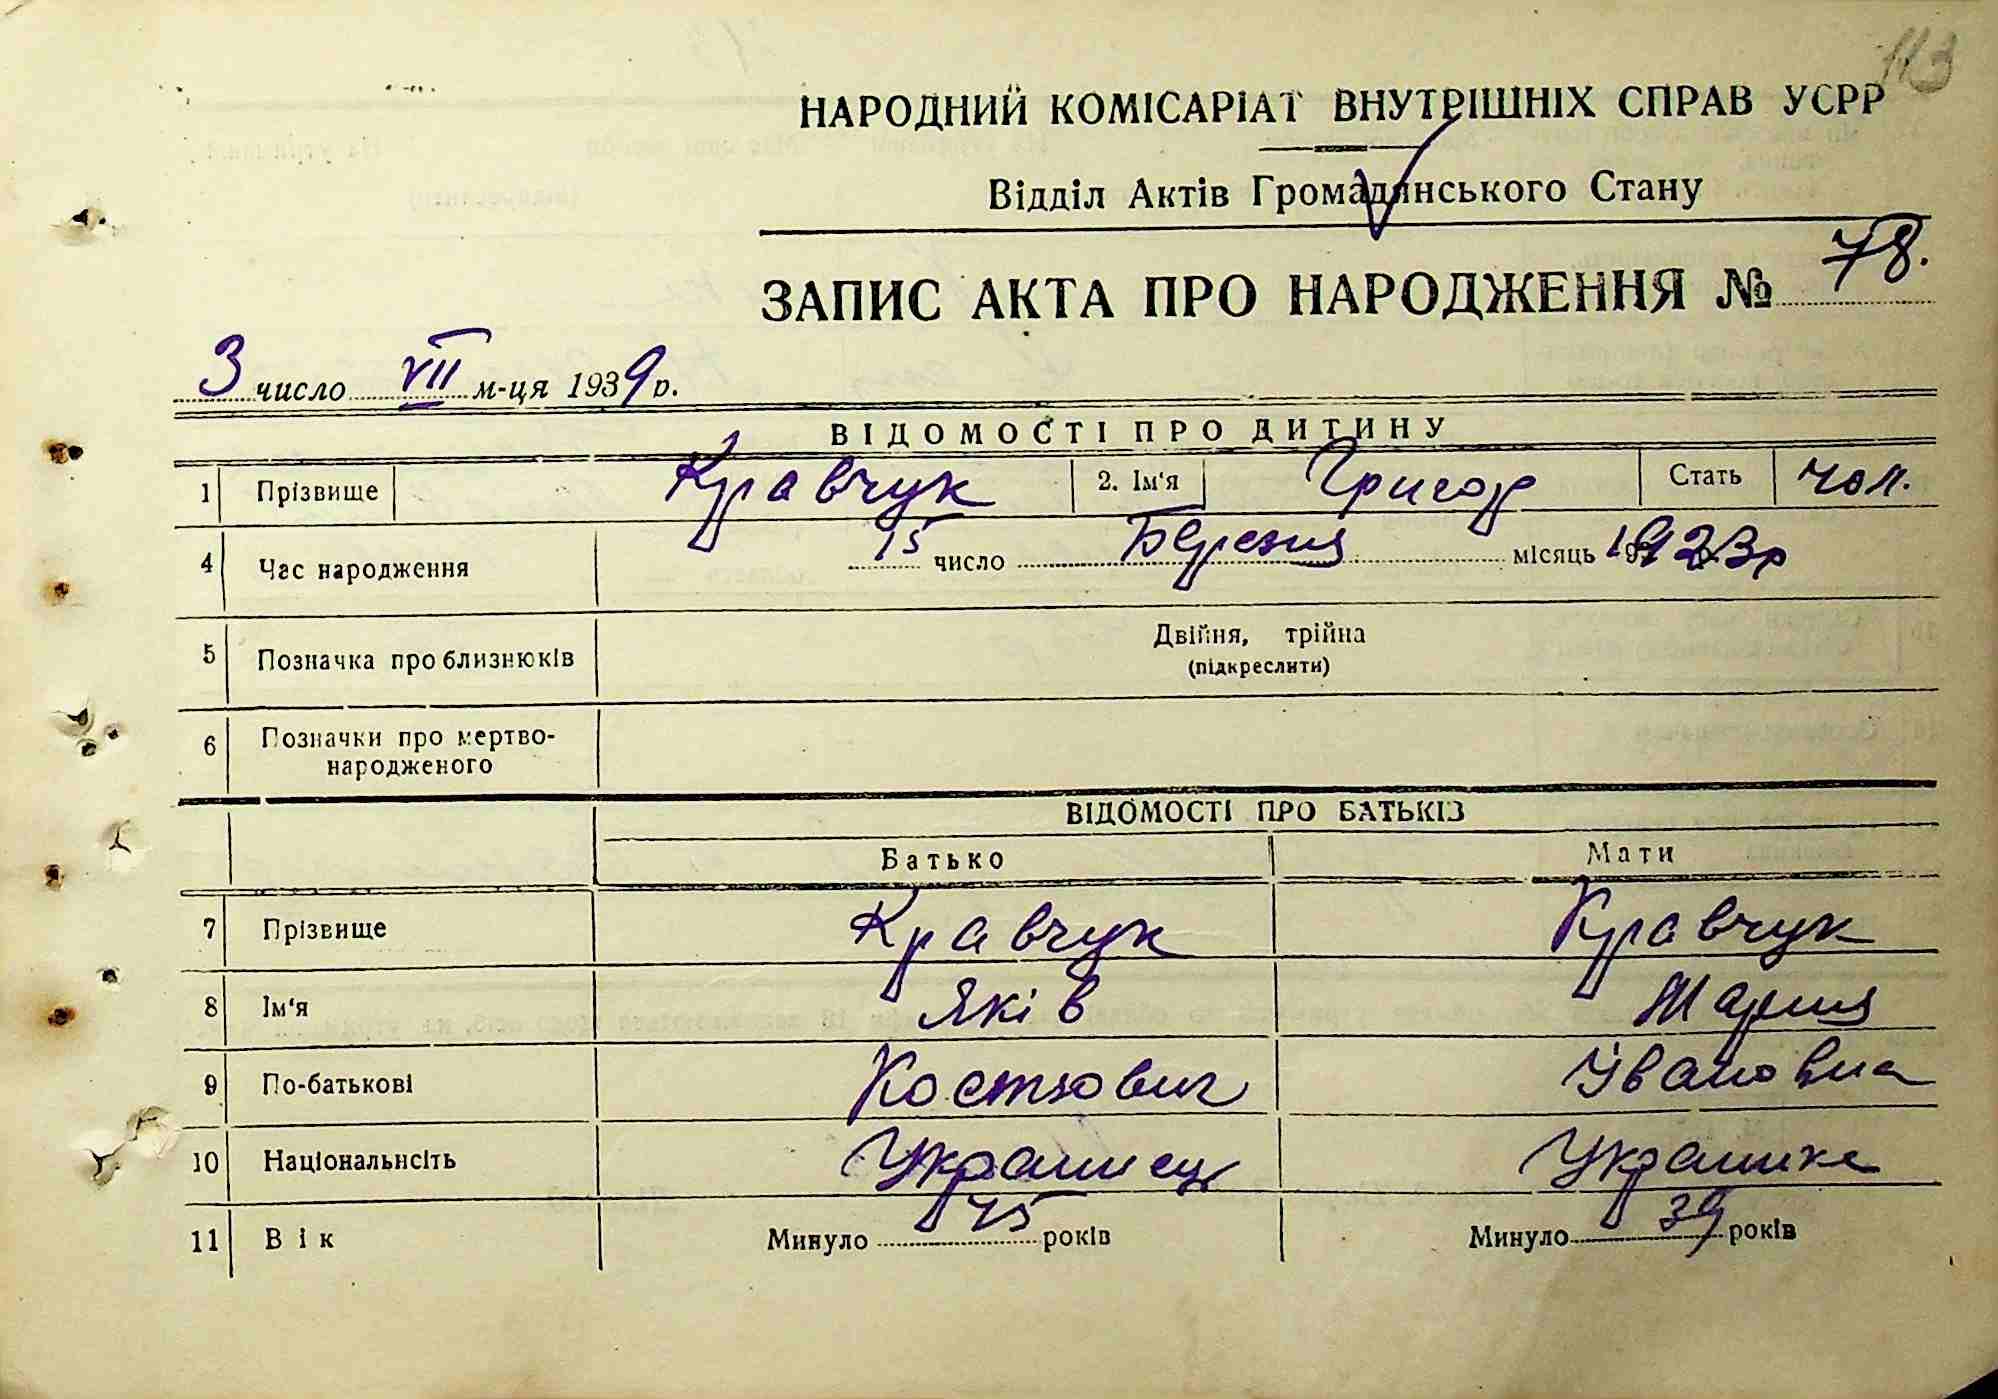 113
НАРОДНИЙ КОМІСАРІАТ ВНУТРІШНІХ СПРАВ УСРР
Відділ Актів Громадянського Стану
ЗАПИС АКТА ПРО НАРОДЖЕННЯ № 78.
3 число VII м-ця 1939 р.
ВІДОМОСТІ ПРО ДИТИНУ
1 Прізвище Кравчук 2. Ім'я Григор Стать чол.
4 Час народження 15 число Березня місяць 1923р
5 Позначка про близнюків Двійня, трійна
(підкреслити)
6 Позначки про мертво-
народженого
ВІДОМОСТІ ПРО БАТЬКІВ
Батько Мати
7 Прізвище Кравчук Кравчук
8 Ім'я Яків Мария
9 По-батькові Костьович Івановна
10 Національнсіть Украинец Украинка
11 Вік Минуло 45 років Минуло 39 років